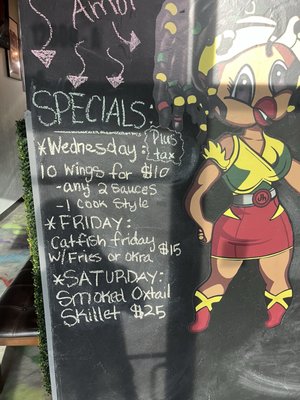 Ambi
SPECIALS:
*Wednesday: {Plus tax}
10 wings for $10
-any 2 sauces
-1 cook style
*FRIDAY:
Catfish friday $15
W/Fries or okra
*SATURDAY:
Smoked Oxtail
Skillet $25